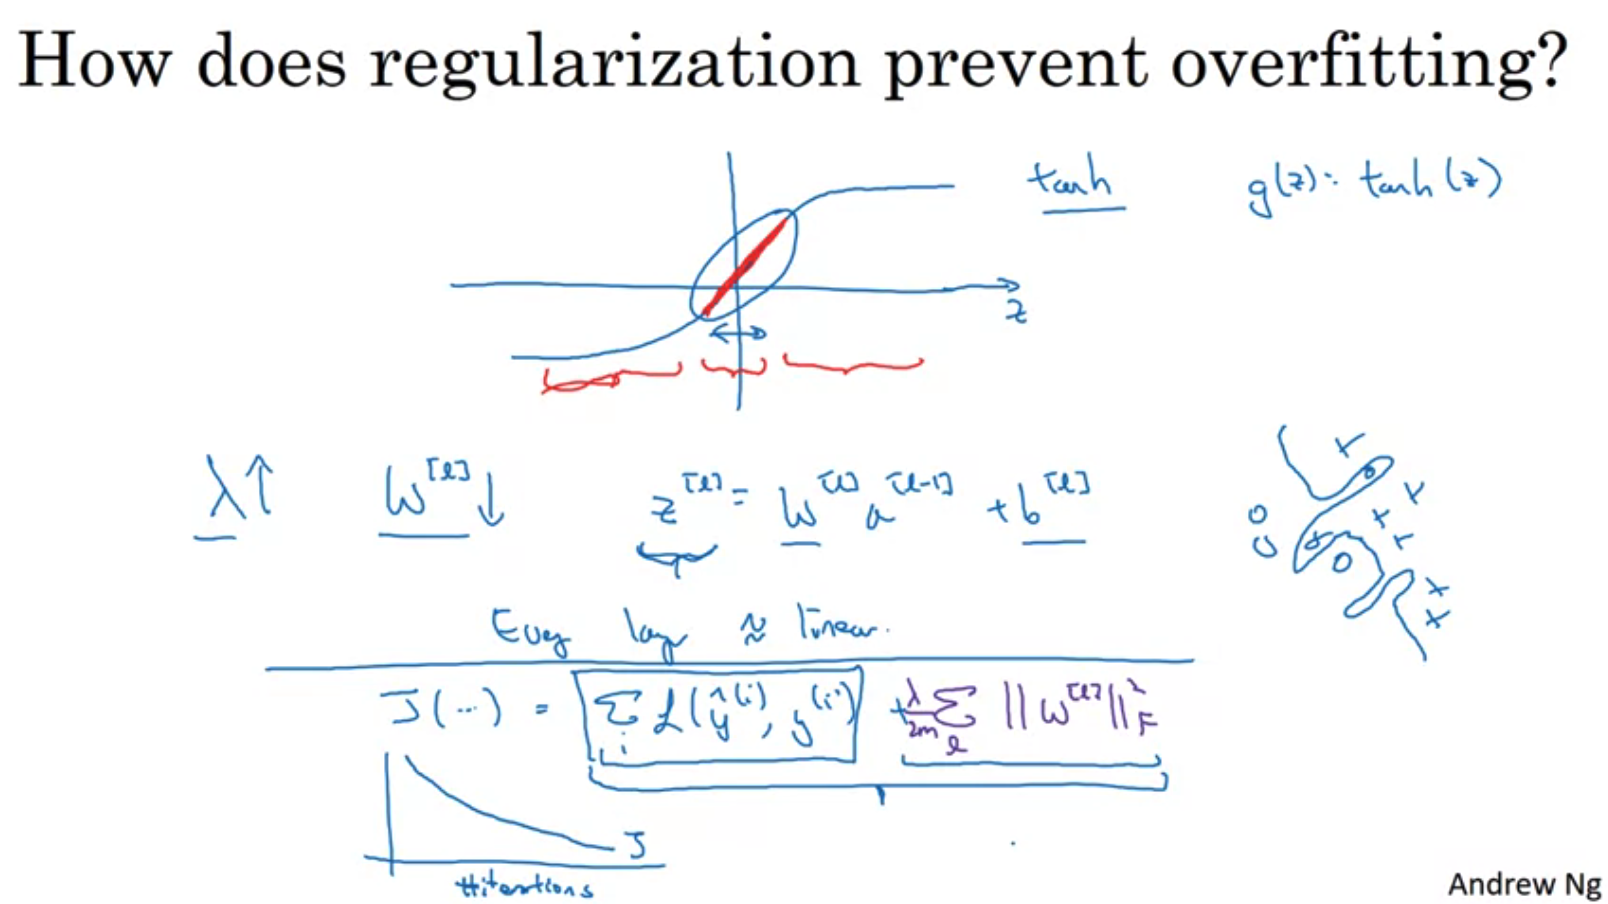 How does regularization prevent overfitting?
tanh g(z): tanh(z)
z
λ↑ W^[l]↓ z^[l] = W^[l] a^[l-1] + b^[l]
Every layer ≈ linear.
J(...) = Σ_i L(ŷ^(i), y^(i)) + λ/2m Σ_l ||W^[l]||²_F
J
#iterations
Andrew Ng